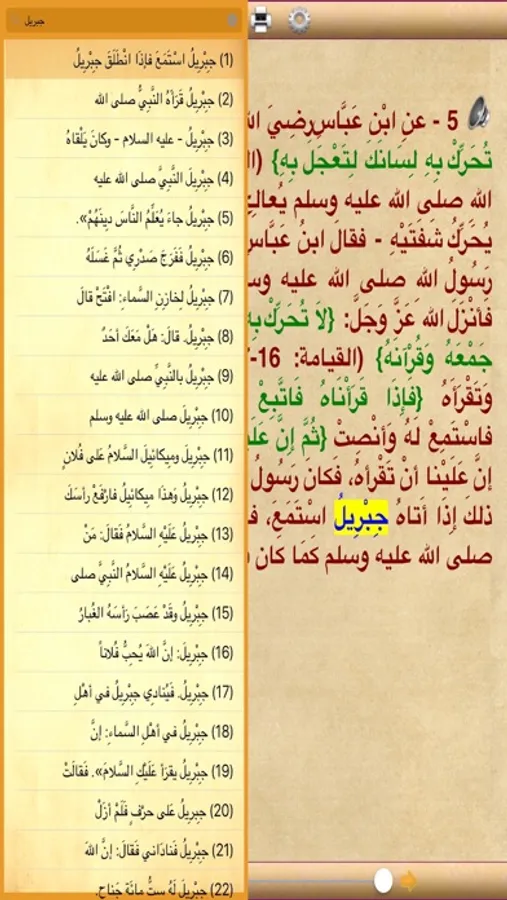 جبريل
(1) جِبْرِيلُ اسْتَمَعَ فإذَا انْطَلَقَ جِبْرِيلُ
(2) جِبْرِيلُ قَرَأهُ النَّبِيُّ صلى الله
(3) جِبْرِيلُ - عليه السلام - وكانَ يَلْقاهُ
(4) جِبْرِيلُ النَّبِيَّ صلى الله عليه
(5) جِبْرِيلُ جاءَ يُعَلِّمُ النَّاسَ دِينَهُمْ».
(6) جِبْرِيلُ فَفَرَجَ صَدْرِي ثُمَّ غَسَلَهُ
(7) جِبْرِيلُ لِخازِنِ السَّماءِ: افْتَحْ قالَ
(8) جِبْرِيلُ. قالَ: هَلْ مَعَكَ أحَدٌ
(9) جِبْرِيلُ بالنَّبِيِّ صلى الله عليه
(10) جِبْرِيلَ صلى الله عليه وسلم
(11) جِبْرِيلَ وميكائيلَ السَّلامُ عَلى فُلانٍ
(12) جِبْرِيلُ وَهذا مِيكائِيلُ فارْفَعْ رأسَكَ
(13) جِبْرِيلُ عَلَيْهِ السَّلامُ فَقالَ: مَنْ
(14) جِبْرِيلُ عَلَيْهِ السَّلامُ النَّبِيَّ صلى
(15) جِبْرِيلُ وقَدْ عَصَبَ رَأسَهُ الغُبارُ
(16) جِبْرِيلَ: إنَّ اللهَ يُحِبُّ فُلاناً
(17) جِبْرِيلُ. فَيُنادِي جِبْرِيلُ في أهْلِ
(18) جِبْرِيلُ في أهْلِ السَّماءِ: إنَّ
(19) جِبْرِيلُ يقرَأ عَلَيْكِ السَّلامَ». فَقالَتْ
(20) جِبرِيلُ عَلى حرْفٍ فَلَمْ أزَلْ
(21) جِبْرِيلُ فَنادَاني فَقالَ: إنَّ اللهَ
(22) جِبْرِيلَ لَهُ ستُّ مائَة جَناحٍ.
5 - عن ابْن عَبَّاسٍ رضيَ
تُحَرِّكْ بهِ لِسانَكَ لِتَعْجَلَ بهِ}
الله صلى الله عليه وسلم يُعالِجُ
يُحَرِّكُ شفَتَيْهِ - فقالَ ابنُ عَبَّاسٍ
رَسُولُ الله صلى الله عليه
فأنْزَلَ الله عَزَّ وَجَلَّ: {لَا تُحَرِّكْ بِهِ
جَمْعَهُ وَقُرْآنَهُ} (القيامة: 16-
وَتَقْرَأهُ {فَإِذَا قَرَأْنَاهُ فَاتَّبِعْ
فاسْتَمِعْ لَهُ وأنْصِتْ {ثُمَّ إِنَّ
إنَّ عَلَيْنا أنْ تَقْرأهُ، فكان رَسُولُ
ذلكَ إذَا أتاهُ جِبْرِيلُ اسْتَمَعَ،
صلى الله عليه وسلم كَمَا كان